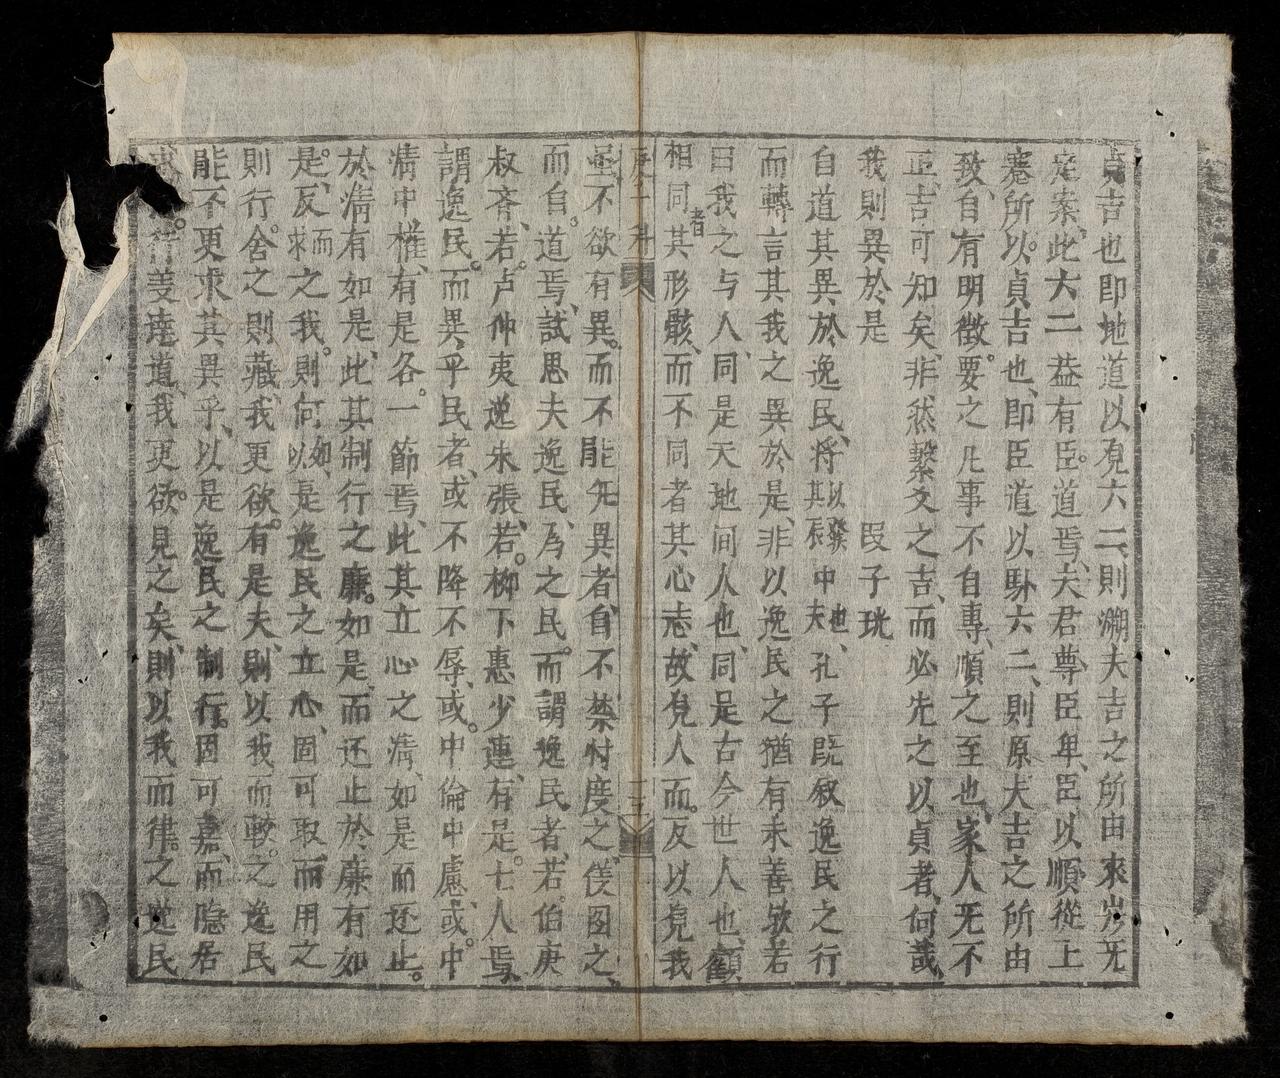 貞吉也即地道以覓六二則溯夫吉之所由來岁旡
定案此大二益有臣道焉夫君尊臣卑臣以順從上
寔所以貞吉也即臣道以卧六二則原夫吉之所由
致自有明徵要之凡事不自專順之至也家人旡不
正吉可知矣非然繫爻之吉而必先之以貞者何哉
我則異於是 段子珖
自道其異於逸民將以發其辰中也夫孔子既叙逸民之行
而轉言其我之異於是非以逸民之猶有未善欤若
曰我之与人同是天地间人也同是古今世人也顧
相同者其形骸而不同者其心志故覓人而反以覓我
虽不欲有異而不能旡異者自不禁忖度之僅图之
而自道焉試思夫逸民為之民而謂逸民者若伯庚
叔斉若卢仲夷逸朱張若柳下惠少連有是七人焉
謂逸民而異乎民者或不降不辱或中倫中慮或中
清中權有是各一節焉此其立心之清如是而还止
於清有如是此其制行之廉如是而还止於廉有如
是反而求之我則何如以是逸民之立心固可取而用之
則行舍之則藏我更欲有是夫則以我而較之逸民
能不更求其異乎以是逸民之制行固可嘉而隐居
行義達道我更欲見之矣則以我而律之逸民